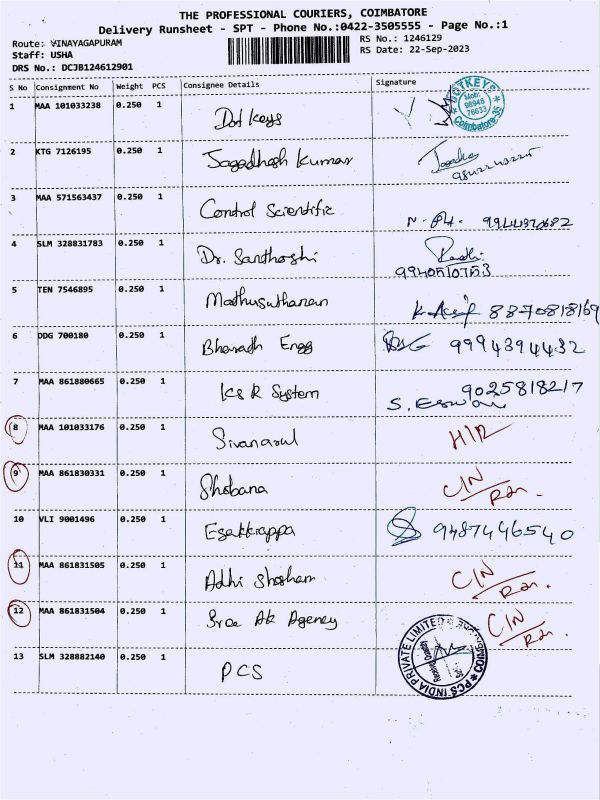 THE PROFESSIONAL COURIERS, COIMBATORE
Delivery Runsheet - SPT - Phone No.:0422-3505555 - Page No.:1
Route: VINAYAGAPURAM
RS No.: 1246129
Staff: USHA
RS Date: 22-Sep-2023
DRS No.: DCJB124612901
S No Consignment No Weight PCS Consignee Details Signature
1 MAA 101033238 0.250 1 Dot Keys
DOTKEYS
Mob:
76633
Coimbatore-35
2 KTG 7126195 0.250 1 Jagadhesh Kumar
3 MAA 571563437 0.250 1 Control Scientific
4 SLM 328831783 0.250 1 Dr. Santhoshi
9940510753
5 TEN 7546895 0.250 1 Madhusuthanan 8870818169
6 DDG 700180 0.250 1 Bharadh Engg 9994394432
7 MAA 861880665 0.250 1 KSR System 9025818217
S. Eswari
8 MAA 101033176 0.250 1 Sivanarul
9 MAA 861830331 0.250 1 Shobana C/N
10 VLI 9001496 0.250 1 Esakkiappa 9487446540
11 MAA 861831505 0.250 1 Adhi C/N
12 MAA 861831504 0.250 1 Sree Ak Agency C/N
13 SLM 328882140 0.250 1 PCS
PCS INDIA PRIVATE LIMITED